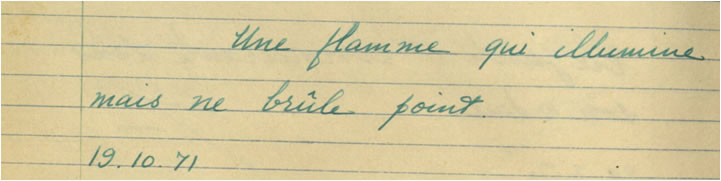 Une flamme qui illumine
mais ne brûle point.
19.10.71